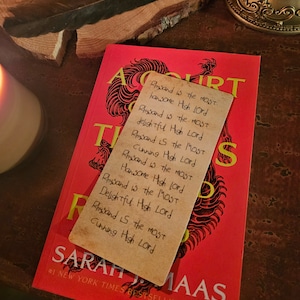 A COURT
Rhysand is the most
Hansome High Lord
Rhysand is the most
Delightful High Lord
Rhysand is the most
Cunning High Lord
Rhysand is the most
Hansome High Lord
Rhysand is the most
Delightful High Lord
Rhysand is the most
Cunning High Lord
SARAH J. MAAS
#1 NEW YORK TIMES